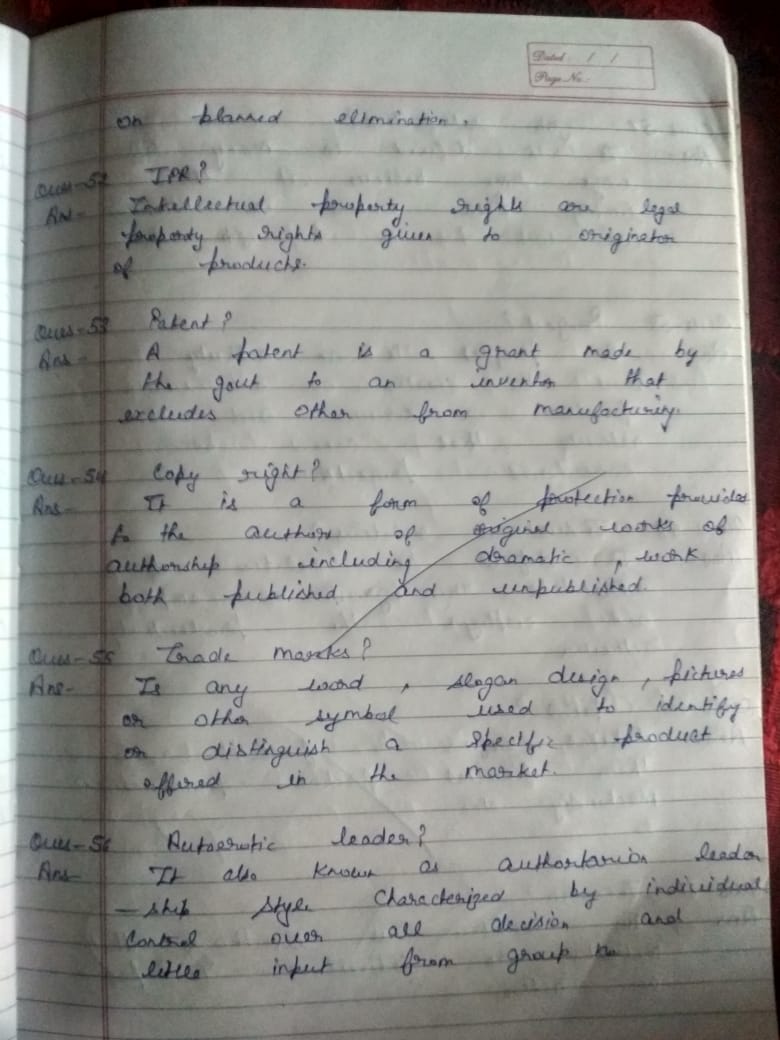 Dated / /
Page No.
on planned elimination.
Ques-52 IPR?
Ans- Intellectual property rights are legal
property rights given to originator
of products.
Ques-53 Patent?
Ans- A patent is a grant made by
the govt to an inventor that
excludes other from manufacturing.
Ques-54 Copy right?
Ans- It is a form of protection provides
to the authors of original works of
authorship including dramatic, work
both published and unpublished.
Ques-55 Trade marks?
Ans- Is any word, slogan design, pictures
or other symbol used to identify
or distinguish a specific product
offered in the market.
Ques-56 Autocratic leader?
Ans- It also known as authortarian leader
-ship style characterized by individual
control over all decision and
little input from group